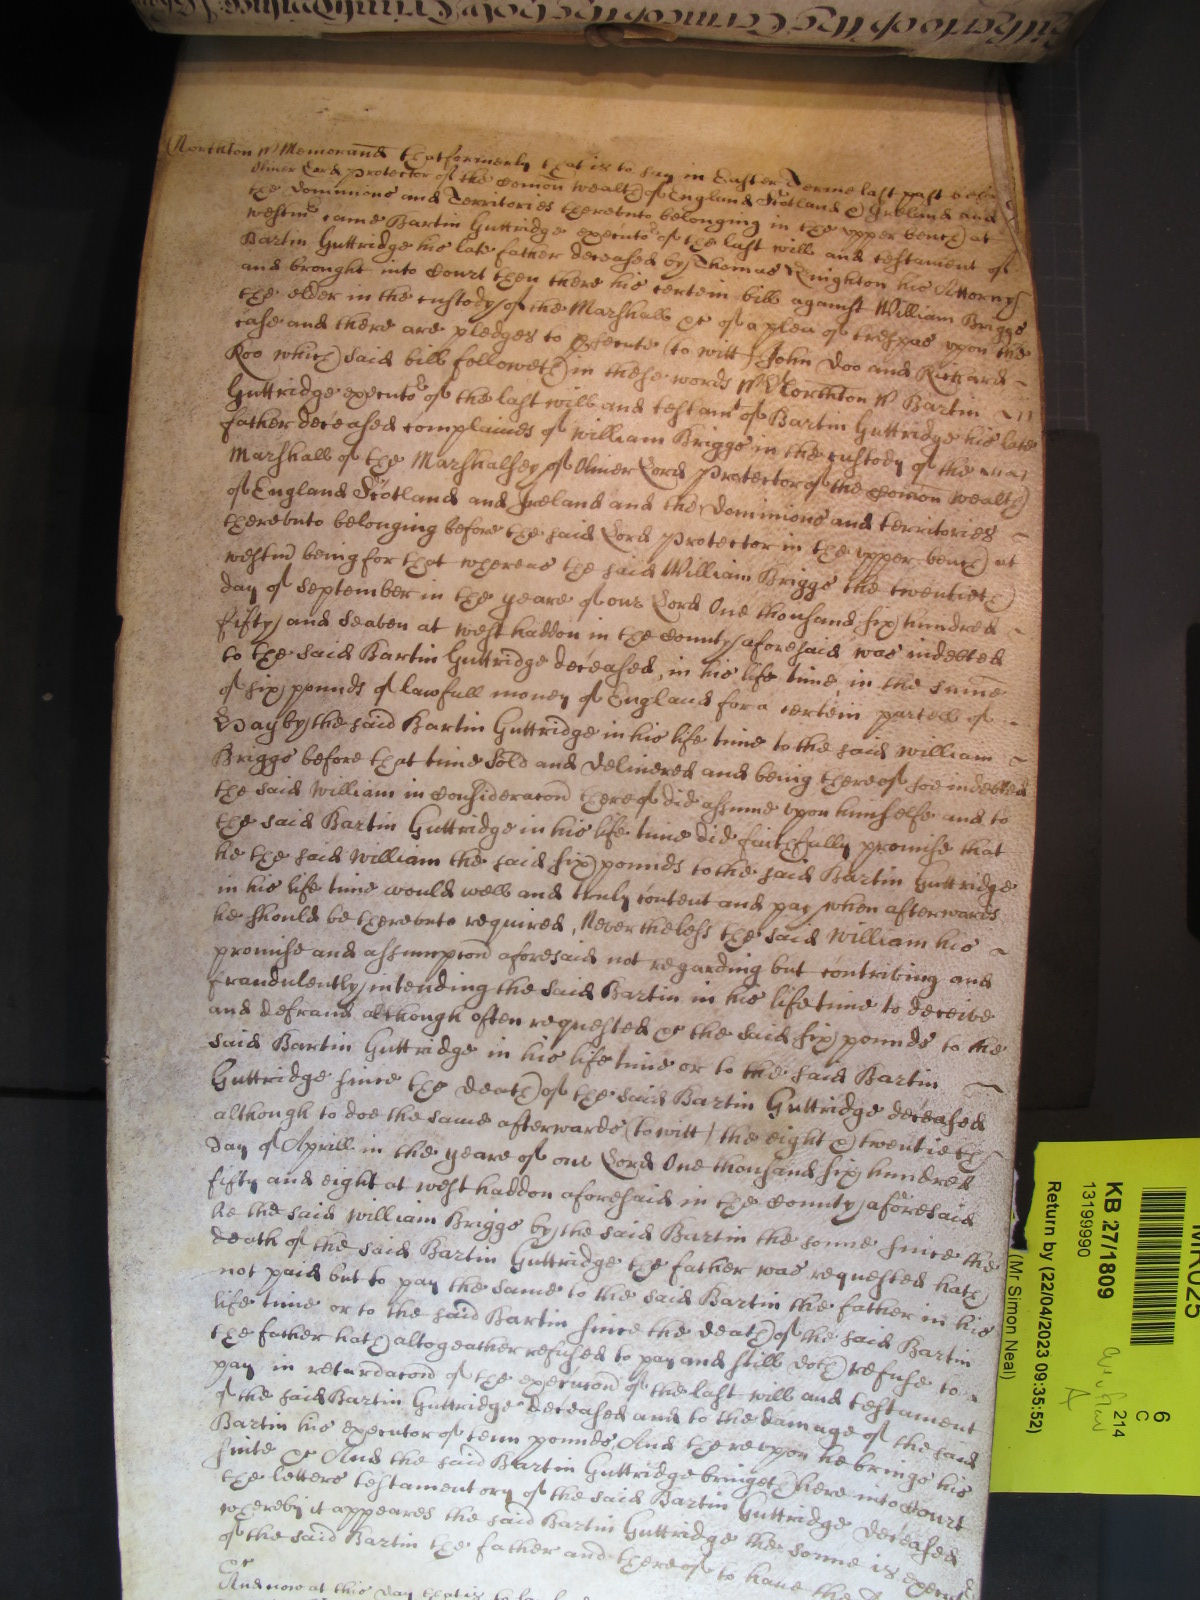 North'ton ss Memorand that formerly that is to say in Easter Terme last past before
Oliver Lord Protector of the Comon wealth of England Scotland & Ireland and
the Dominions and Territories thereunto belonging in the upper bench at
westmr came Bartin Guttridge executor of the last will and testament of
Bartin Guttridge his late father deceased by Thomas Knighton his Attorny
and brought into Court then there his certein bill against William Briggs
the elder in the custody of the Marshall &c of a plea of trespas upon the
case and there are pledges to prosecute (to witt) John Doo and Richard
Roo which said bill followeth in these words ss North'ton ss Bartin
Guttridge executor of the last will and testamt of Bartin Guttridge his late
father deceased complaines of William Briggs in the custody of the
Marshall of the Marshalsey of Oliver Lord Protector of the Comon wealth
of England Scotland and Ireland and the Dominions and territories
thereunto belonging before the said Lord Protector in the upper bench at
westmr being for that whereas the said William Briggs the twentieth
day of September in the yeare of our Lord One thousand six hundred
fifty and seaven at west haddon in the County aforesaid was indebted
to the said Bartin Guttridge deceased, in his life time, in the summe
of six pounds of lawfull money of England for a certein parcell of
Hay by the said Bartin Guttridge in his life time to the said William
Briggs before that time sold and delivered and being thereof soe indebted
the said William in Consideracon thereof did assume upon himselfe and to
the said Bartin Guttridge in his life time did faithfully promise that
he the said William the said six pounds to the said Bartin Guttridge
in his life time would well and truly content and pay when afterwards
he should be thereunto required, Nevertheless the said William his
promise and assumpcon aforesaid not regarding but contriving and
fraudulently intending the said Bartin in his life time to deceive
and defraud although often requested &c the said six pounds to the
said Bartin Guttridge in his life time or to the said Bartin
Guttridge since the death of the said Bartin Guttridge deceased
although to doe the same afterwards (to witt) the eight & twentieth
day of Aprill in the yeare of our Lord One thousand six hundred
fifty and eight at west haddon aforesaid in the County aforesaid
he the said William Briggs by the said Bartin the sonne since the
death of the said Bartin Guttridge the father was requested hath
not paid but to pay the same to the said Bartin the father in his
life time or to the said Bartin since the death of the said Bartin
the father hath altogeather refused to pay and still doth refuse to
pay in retardacon of the execucon of the last will and testament
of the said Bartin Guttridge deceased and to the damage of the said
Bartin his executor of tenn pounds And thereupon he brings his
suite &c And the said Bartin Guttridge bringeth here into Court
the letters testamentory of the said Bartin Guttridge deceased
whereby it appeares the said Bartin Guttridge the sonne is execut
of the said Bartin the father and thereof to have the
&c
And now at this day that is to
KB 27/1809
13199990
Return by (22/04/2023 09:35:52)
(Mr Simon Neal)
6
C
214
A